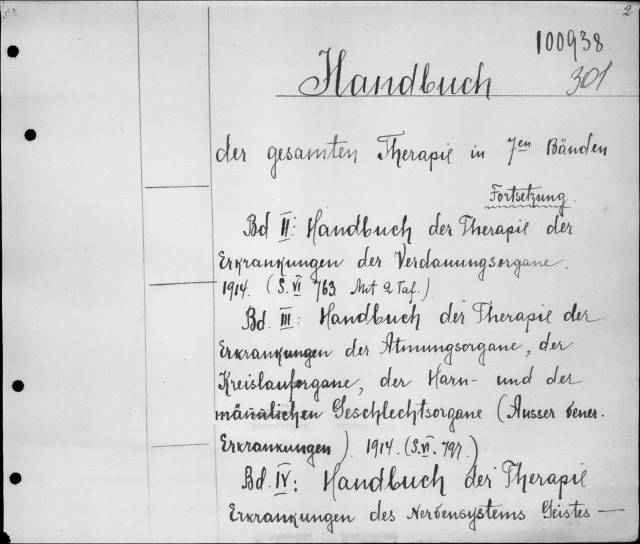 2
100938.
301
Handbuch
der gesamten Therapie in 7en Bänden
Fortsetzung.
Bd II: Handbuch der Therapie der
Erkrankungen der Verdauungsorgane.
1914. (S. VI 763 Mit 2 Taf.)
Bd. III: Handbuch der Therapie der
Erkrankungen der Atmungsorgane, der
Kreislauforgane, der Harn- und der
männlichen Geschlechtsorgane (Ausser vener.
Erkrankungen). 1914. (S. VI. 797.)
Bd. IV: Handbuch der Therapie
Erkrankungen des Nervensystems Geistes—